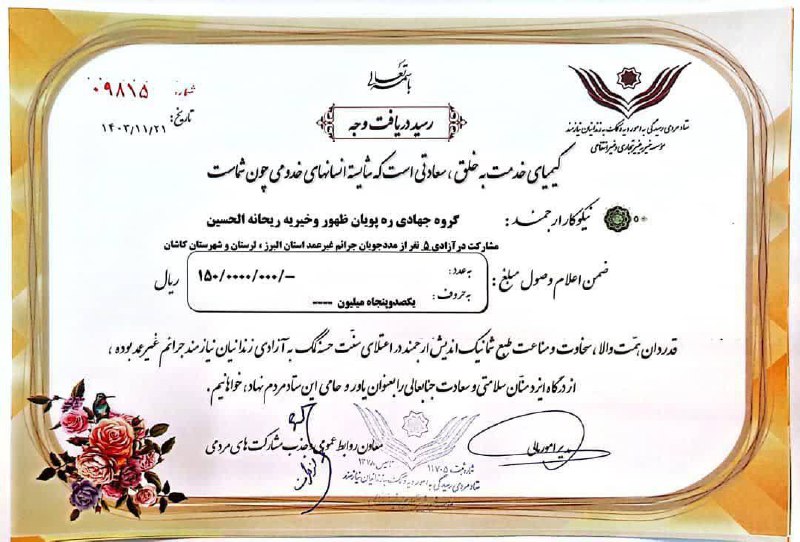 باسمه تعالی
شماره: ۰۹۸۱۵
تاریخ: ۱۴۰۳/۱۱/۲۱
رسید دریافت وجه
ستاد مردمی رسیدگی به امور دیه و کمک به زندانیان نیازمند
مؤسسه خیریه غیرتجاری و غیرانتفاعی
کیمیای خدمت به خلق، سعادتی است که شایسته انسانهای خدومی چون شماست
نیکوکار ارجمند: گروه جهادی ره پویان ظهور وخیریه ریحانه الحسین
مشارکت در آزادی ۵ نفر از مددجویان جرائم غیرعمد استان البرز، لرستان و شهرستان کاشان
ضمن اعلام وصول مبلغ: به عدد: ۱۵۰/۰۰۰۰/۰۰۰/- ریال
به حروف: یکصدوپنجاه میلیون ----
قدردان همت والا، سخاوت و مناعت طبع شما نیک اندیش ارجمند در اعتلای سنت حسنه کمک به آزادی زندانیان نیازمند جرائم غیرعمد بوده،
از درگاه ایزد منان سلامتی و سعادت جنابعالی را بعنوان یاور و حامی این ستاد مردم نهاد، خواهانیم.
مدیر امور مالی
معاون روابط عمومی و جذب مشارکت های مردمی
شماره ثبت ۱۱۷۰۵
ستاد مردمی رسیدگی به امور دیه و کمک به زندانیان نیازمند